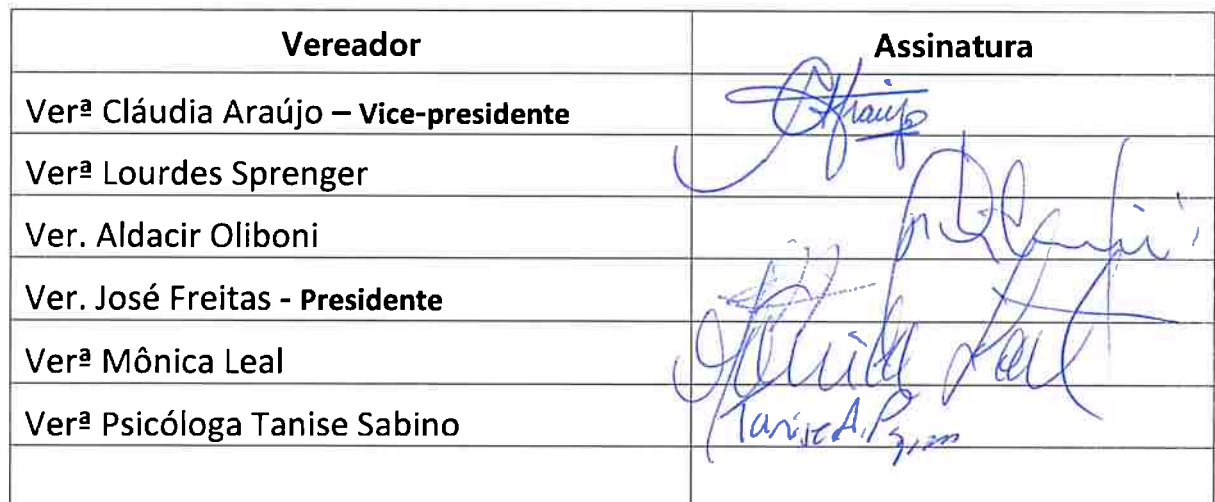 Vereador Assinatura
Verª Cláudia Araújo – Vice-presidente Araujo
Verª Lourdes Sprenger
Ver. Aldacir Oliboni
Ver. José Freitas - Presidente
Verª Mônica Leal Mônica Leal
Verª Psicóloga Tanise Sabino Tanise A.